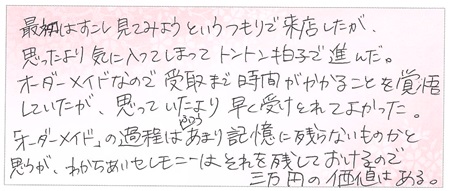 最初はすこし見てみようというつもりで来店したが、
思ったより気に入ってしまってトントン拍子で進んだ。
オーダーメイドなので受取まで時間がかかることを覚悟
していたが、思っていたより早く受けとれてよかった。
「オーダーメイド」の過程はふつうあまり記憶に残らないものかと
思うが、わかちあいセレモニーは、それを残しておけるので
三万円の価値はある。